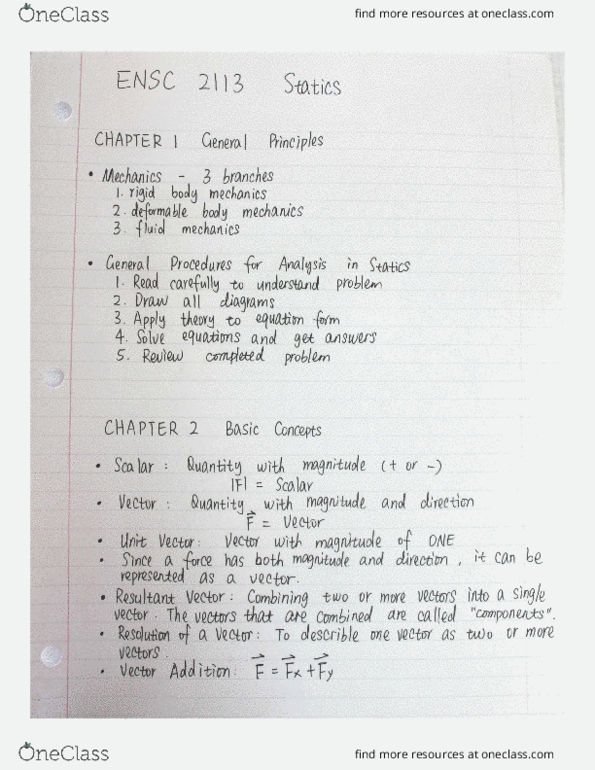 OneClass
find more resources at oneclass.com
ENSC 2113 Statics
CHAPTER 1 General Principles
• Mechanics - 3 branches
1. rigid body mechanics
2. deformable body mechanics
3. fluid mechanics
• General Procedures for Analysis in Statics
1. Read carefully to understand problem
2. Draw all diagrams
3. Apply theory to equation form
4. Solve equations and get answers
5. Review completed problem
CHAPTER 2 Basic Concepts
• Scalar : Quantity with magnitude (+ or -)
|F| = Scalar
• Vector : Quantity with magnitude and direction
F⃗ = Vector
• Unit Vector: Vector with magnitude of ONE
• Since a force has both magnitude and direction, it can be
represented as a vector.
• Resultant Vector: Combining two or more vectors into a single
vector. The vectors that are combined are called "components".
• Resolution of a Vector: To describle one vector as two or more
vectors.
• Vector Addition: F⃗ = F⃗x + F⃗y
OneClass
find more resources at oneclass.com